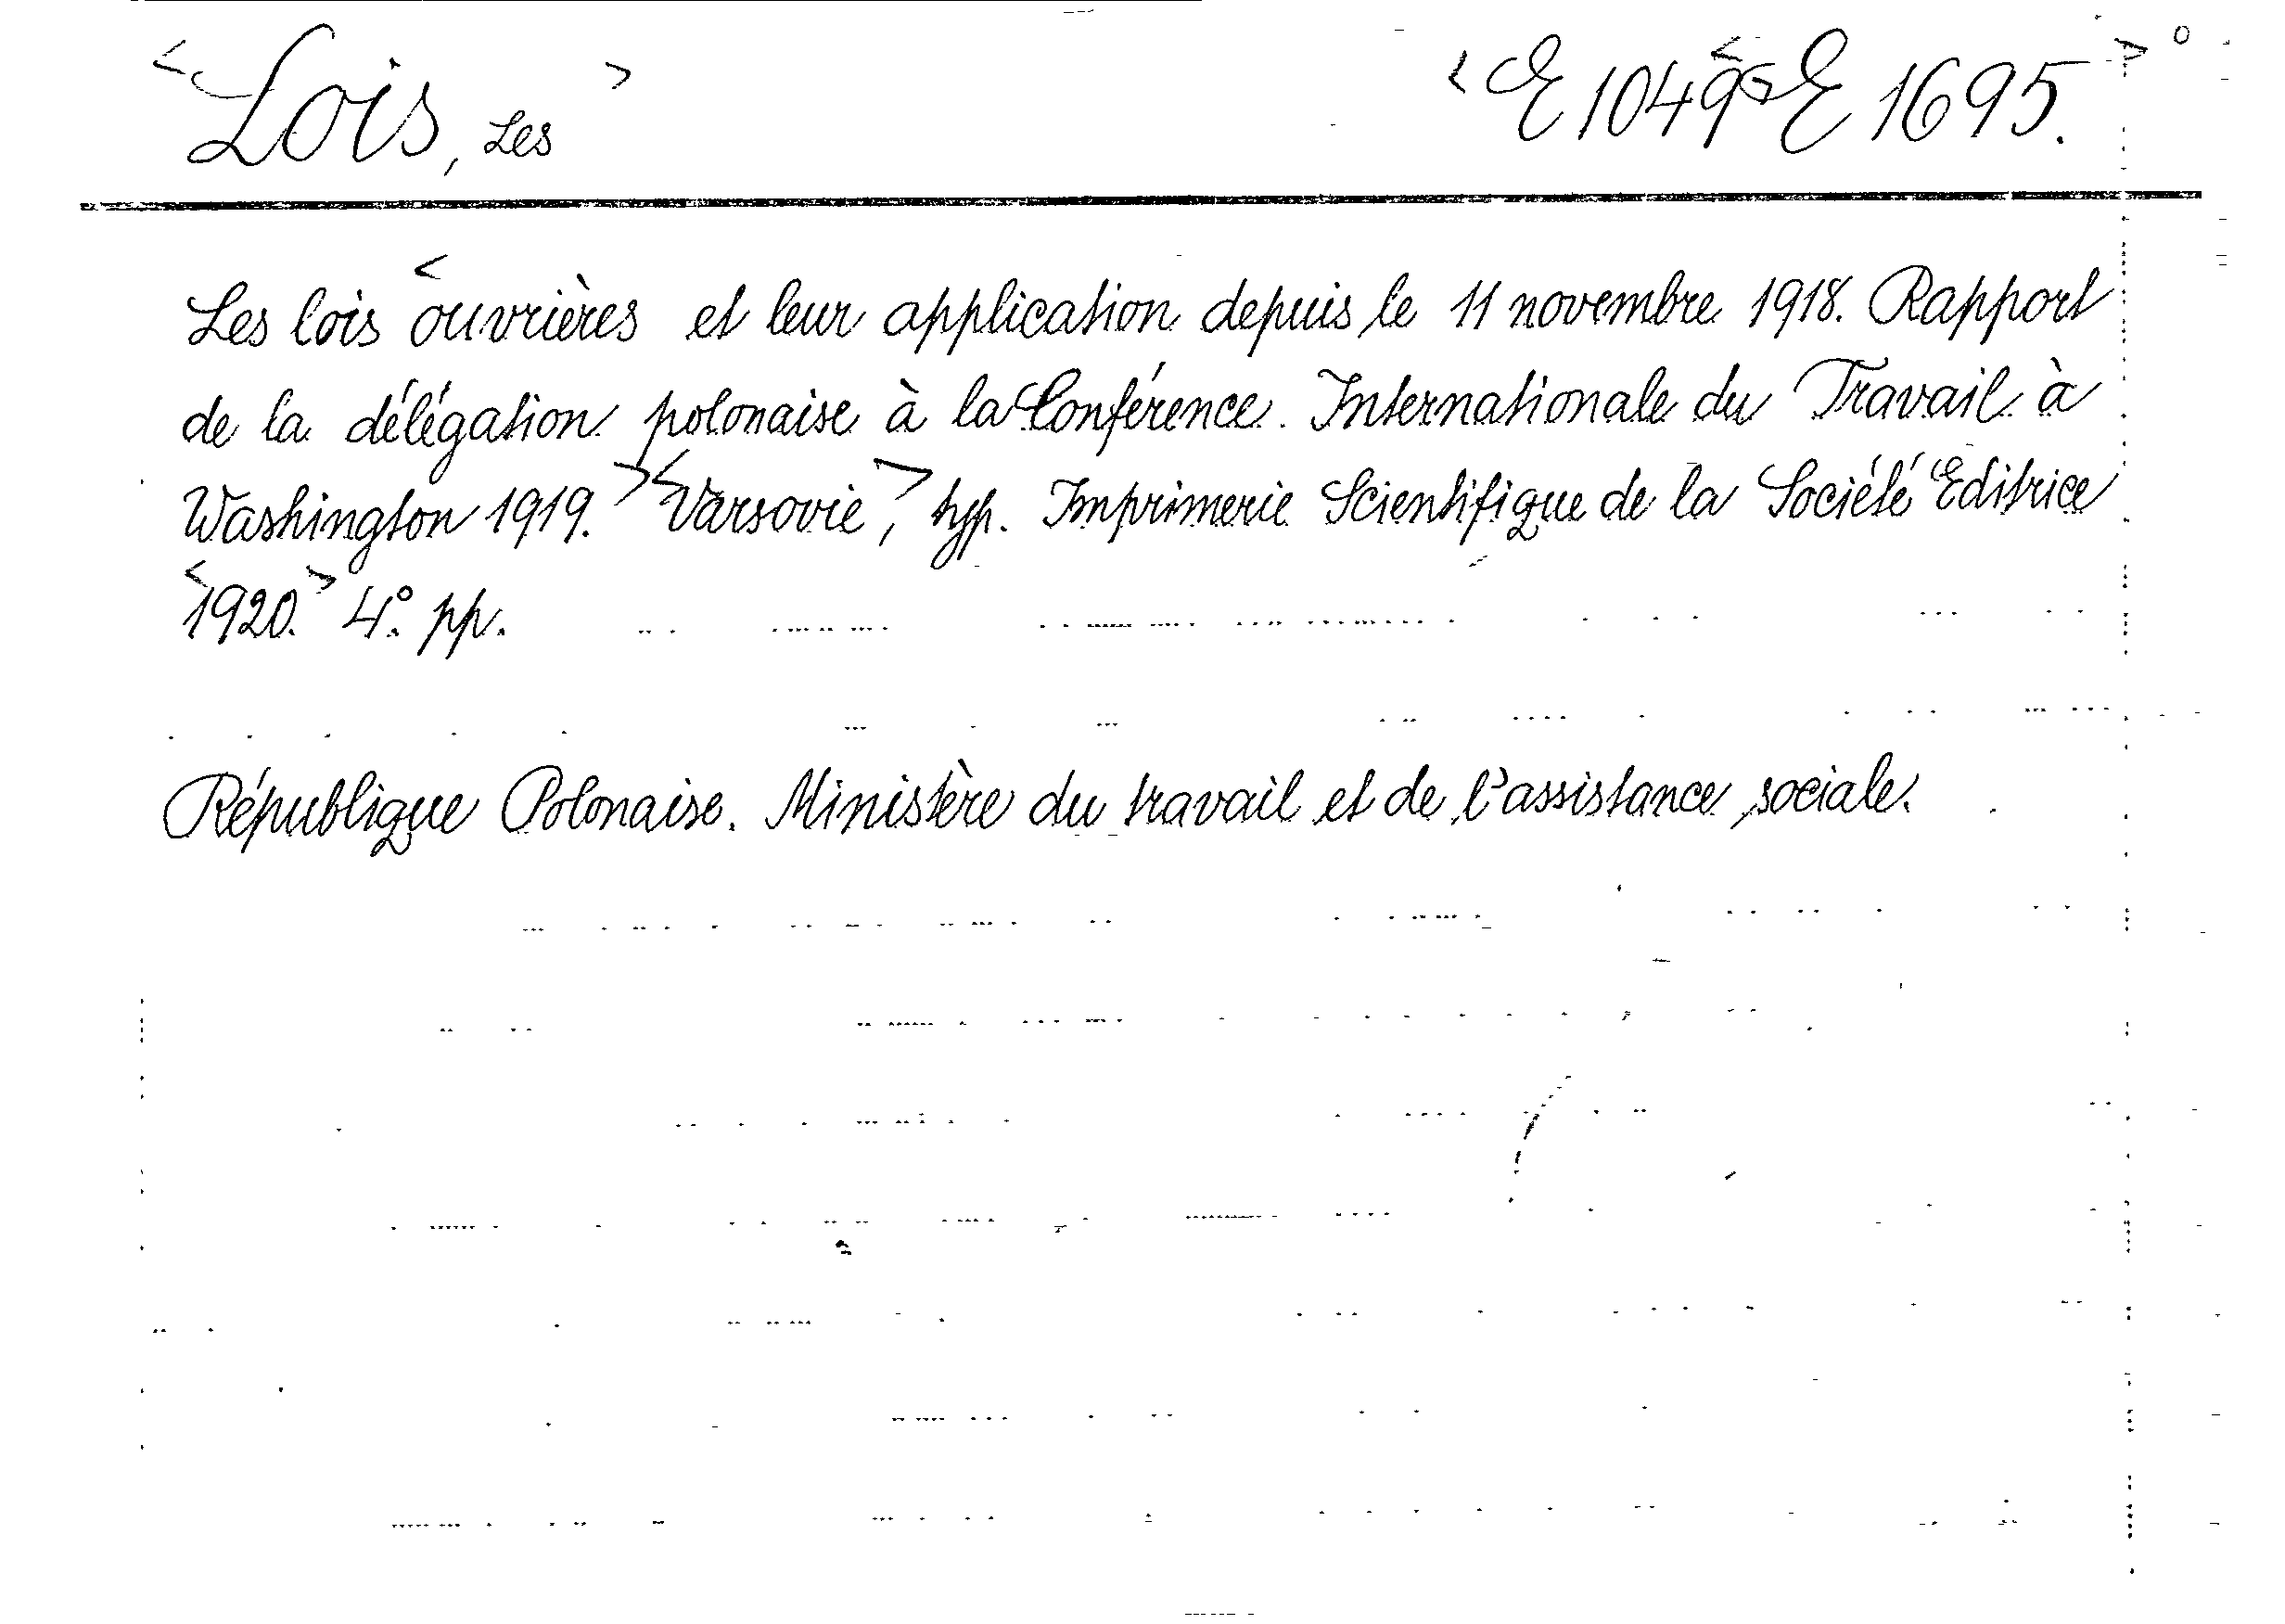 <Lois, Les>
<E 1049 <E 1695.>°
Les lois <ouvrières et leur application depuis le 11 novembre 1918. Rapport
de la délégation polonaise à la Conférence Internationale du Travail à
Washington 1919.> <Varsovie,> typ. Imprimerie Scientifique de la Société Editrice
<1920.> 4° pp.
République Polonaise. Ministère du travail et de l'assistance sociale.